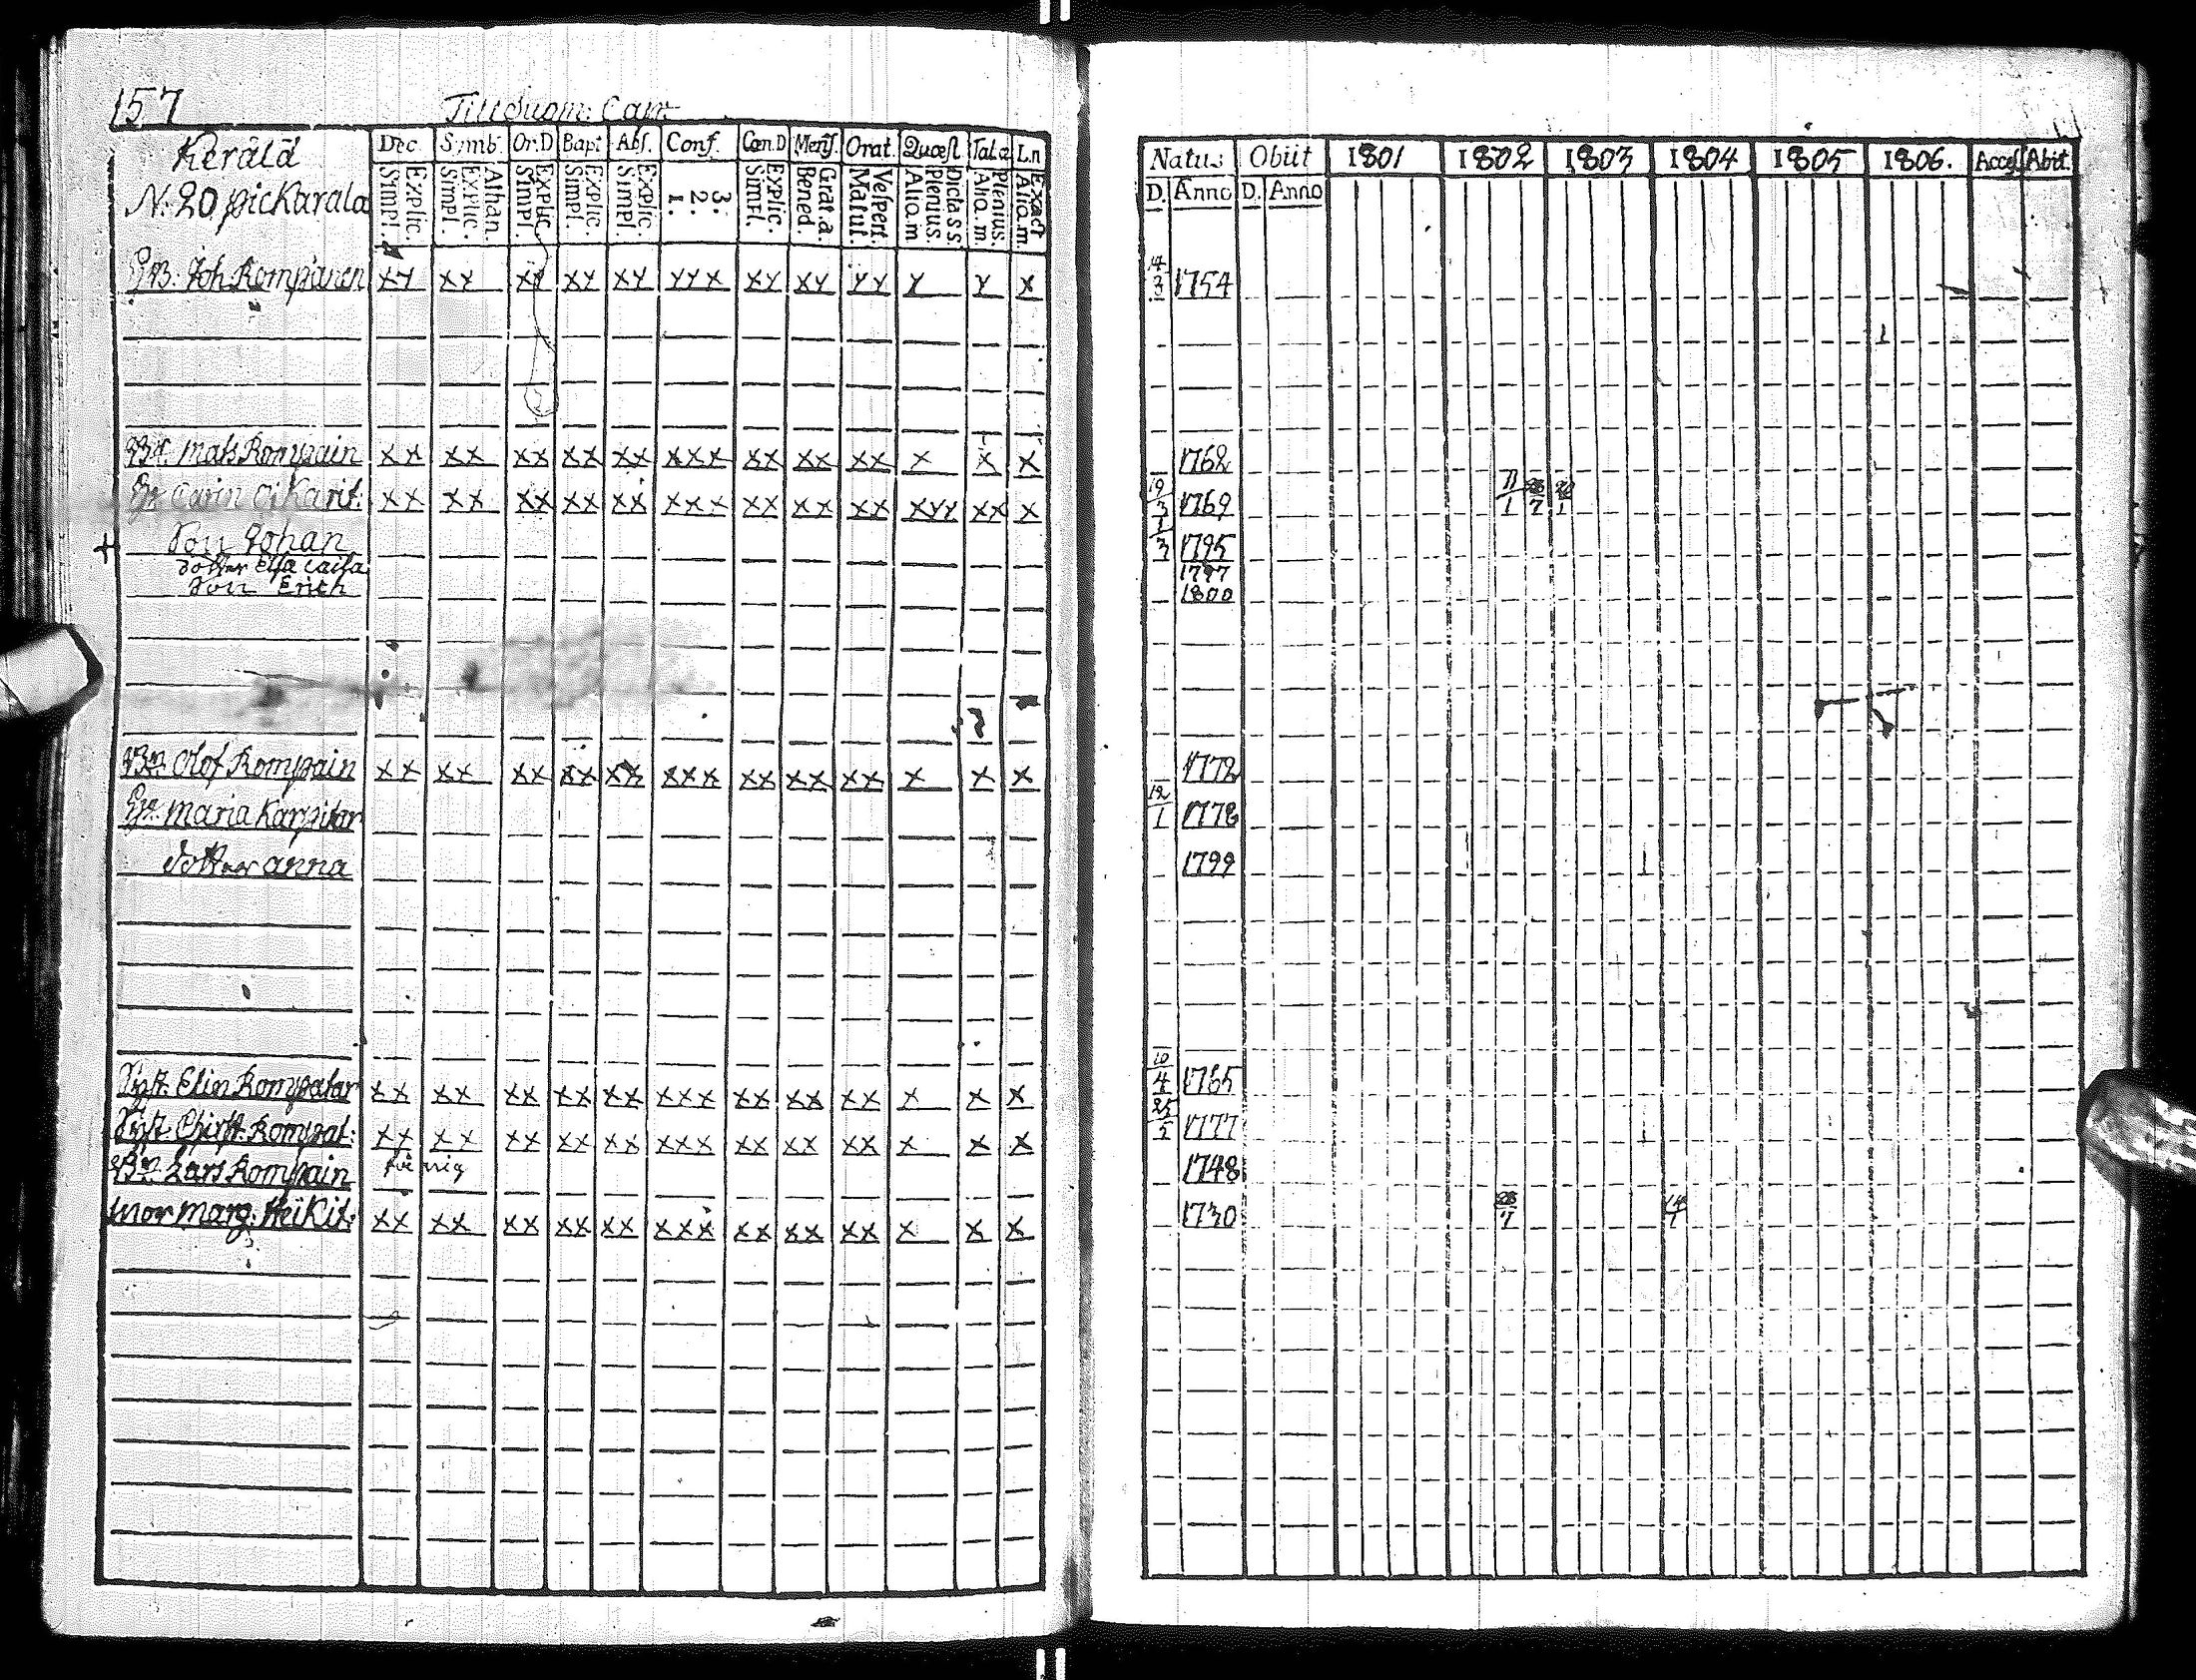 157
Kerälä
N: 20 pickarala
Dec. Symb. Or.D Bapt Abs. Conf. Cœn.D Mens. Orat. Quæst. L.n
Simpl. Explic. Simpl. Explic. Athan. Simpl. Explic. Simpl. Explic. Simpl. Explic. 1. 2. 3. Simpl. Explic. Bened. Grat.a. Matut. Vespert. Alio.m Plenius. Dicta s s. Alio.m Plenius. Alio.m. Exact
Natus Obiit 1801 1802 1803 1804 1805 1806. Access Abit.
D. Anno D. Anno
Joh. Rompainen xx xx xx xx xx xxx xx xx xx x x x 14/3 1754
Mats Rompain xx xx xx xx xx xxx xx xx xx x x x 1762
Carin xx xx xx xx xx xxx xx xx xx xxx xx x 19/3 1769 11/1
+ Son Johan 1/3 1795
dotter Elsa Caisa 1797
Son Erich 1800
Olof Rompain xx xx xx xx xx xxx xx xx xx x x x 1772
Maria Karpitar 12/1 1778
dotter anna 1799
Syst. Elin Rompatar xx xx xx xx xx xxx xx xx xx x x x 10/4 1765
Syst. Christ. Rompat: xx xx xx xx xx xxx xx xx xx x x x 25/5 1777
Lars Rompain 1748
mor marg. Heikit: xx xx xx xx xx xxx xx xx xx x x x 1730